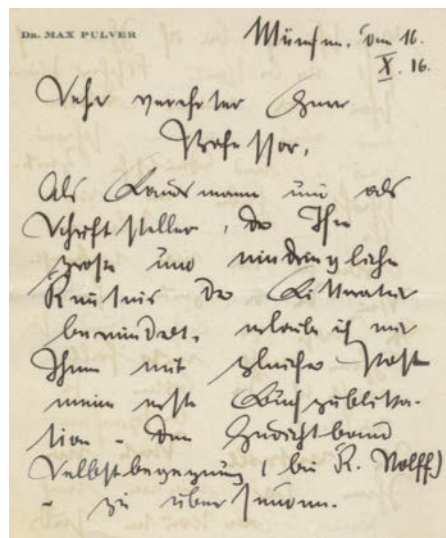 DR. MAX PULVER
München. den 16.
X. 16.
Sehr verehrter Herr
Professor,
Als Landsmann und als
Schriftsteller, der Ihre
grosse und eindringliche
Kenntnis der Litteratur
bewundert, erlaube ich mir
Ihnen mit gleicher Post
meine erste Buchpublika-
tion - den Gedichtband
Selbstbegegnung (bei K. Wolff)
- zu übersenden.